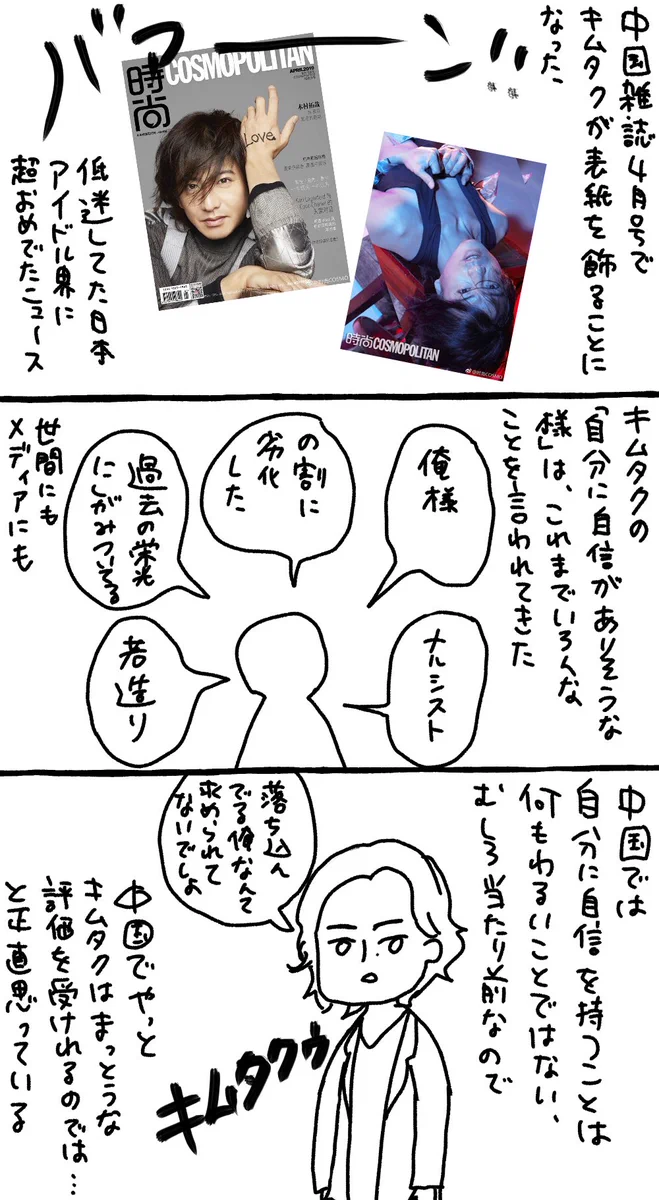 中国雑誌4月号で
キムタクが表紙を飾ることに
なった
バァーーン!!
時尚
COSMOPOLITAN
APRIL 2019
木村拓哉
Love.
時尚COSMOPOLITAN
低迷してた日本
アイドル界に
超おめでたニュース
キムタクの
「自分に自信がありそうな
様」は、これまでいろんな
ことを言われてきた
俺様
の割に
劣化
した
過去の栄光
にしがみついてる
世間にも
メディアにも
ナルシスト
若造り
中国では
自分に自信を持つことは
何もわるいことではない、
むしろ当たり前なので
落ち込ん
でる俺なんて
求められて
ないでしょ
キムタクゥ
中国でやっと
キムタクはまっとうな
評価を受けれるのでは…
と正直思っている